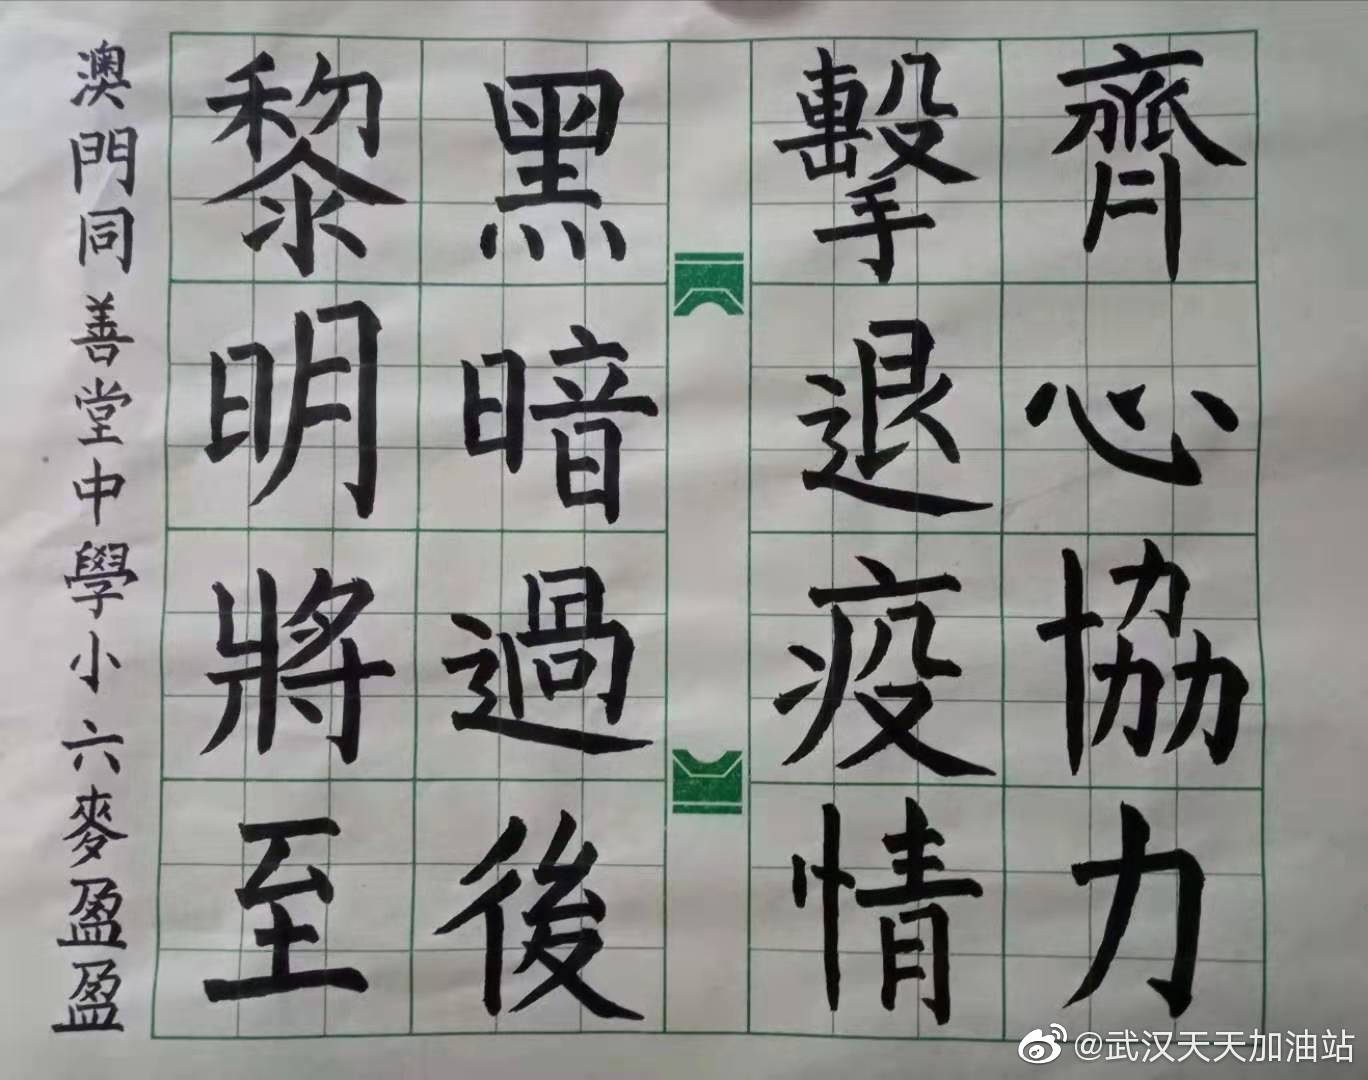 齊心協力
擊退疫情
黑暗過後
黎明將至
澳門同善堂中學小六麥盈盈
@武汉天天加油站